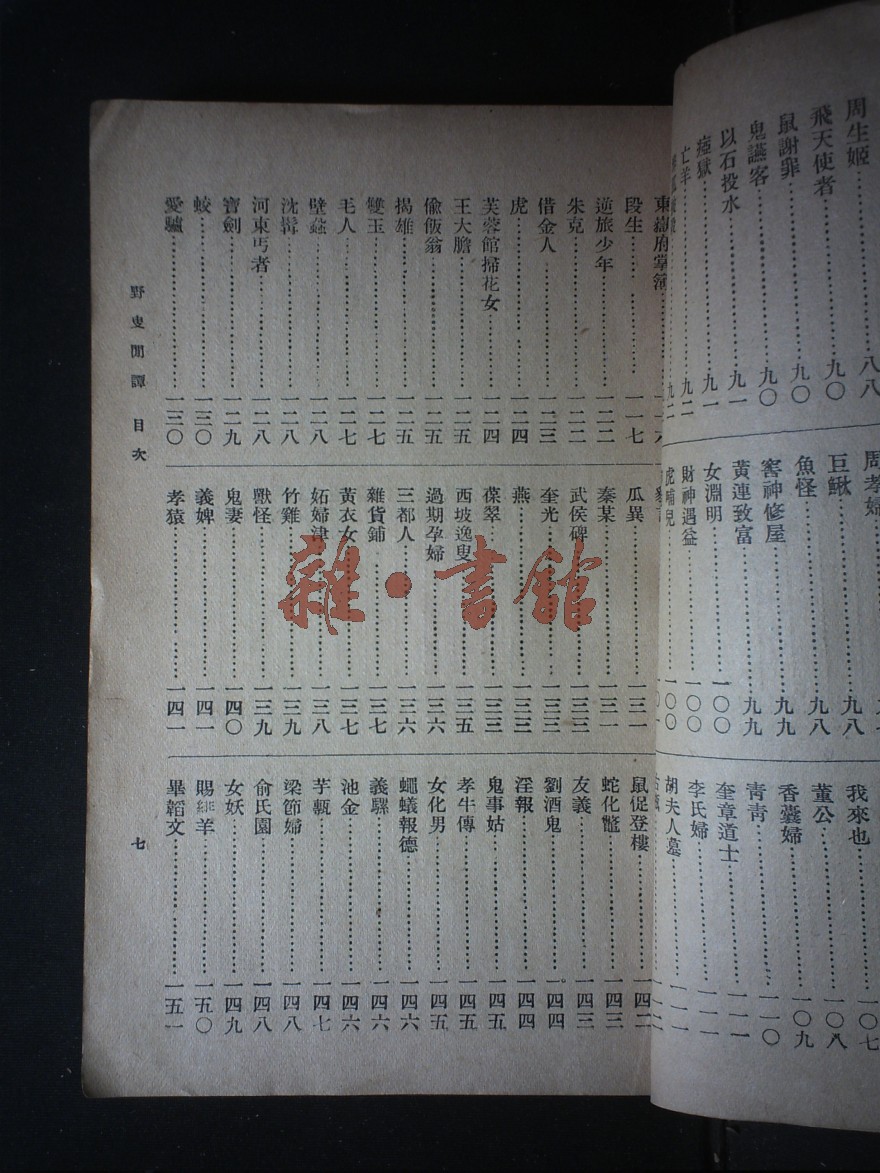 周生姬……八八
飛天使者……九〇
鼠謝罪……九〇
鬼讌客……九〇
以石投水……九一
瘞獄……九一
亡羊……九一
周孝婦
巨鰍……九八
魚怪……九八
窖神修屋……九九
黃連致富……九九
女淵明……一〇〇
財神遇益……一〇〇
我來也……一〇七
董公……一〇八
香囊婦……一〇九
靑靑……一一〇
奎章道士……一一一
李氏婦……一一一
胡夫人墓……一一一
東嶽府掌簿
段生……一一七
逆旅少年……一二二
朱克……一二二
借金人……一二三
虎……一二四
芙蓉館掃花女……一二四
王大膽……一二五
偸飯翁……一二五
揭雄……一二五
雙玉……一二七
毛人……一二七
壁蝨……一二八
沈𦒍……一二八
河東丐者……一二八
寶劍……一二九
蛟……一三〇
愛驢……一三〇
瓜異……一三一
秦某……一三一
武侯碑……一三三
奎光……一三三
燕……一三三
葆翠……一三三
西坡逸叟……一三五
過期孕婦……一三六
三都人……一三六
雜貨鋪……一三七
黃衣女……一三七
妬婦津……一三八
竹雞……一三九
獸怪……一三九
鬼妻……一四〇
義婢……一四一
孝猿……一四一
鼠促登樓……一四二
蛇化鼈……一四三
友義……一四三
劉酒鬼……一四四
淫報……一四四
鬼事姑……一四五
孝牛傳……一四五
女化男……一四五
蠅蟻報德……一四六
義騾……一四六
池金……一四六
芋甎……一四七
梁節婦……一四八
俞氏園……一四八
女妖……一四九
賜緋羊……一五〇
畢韜文……一五一
野叟閒譚 目次
七
雜·書館